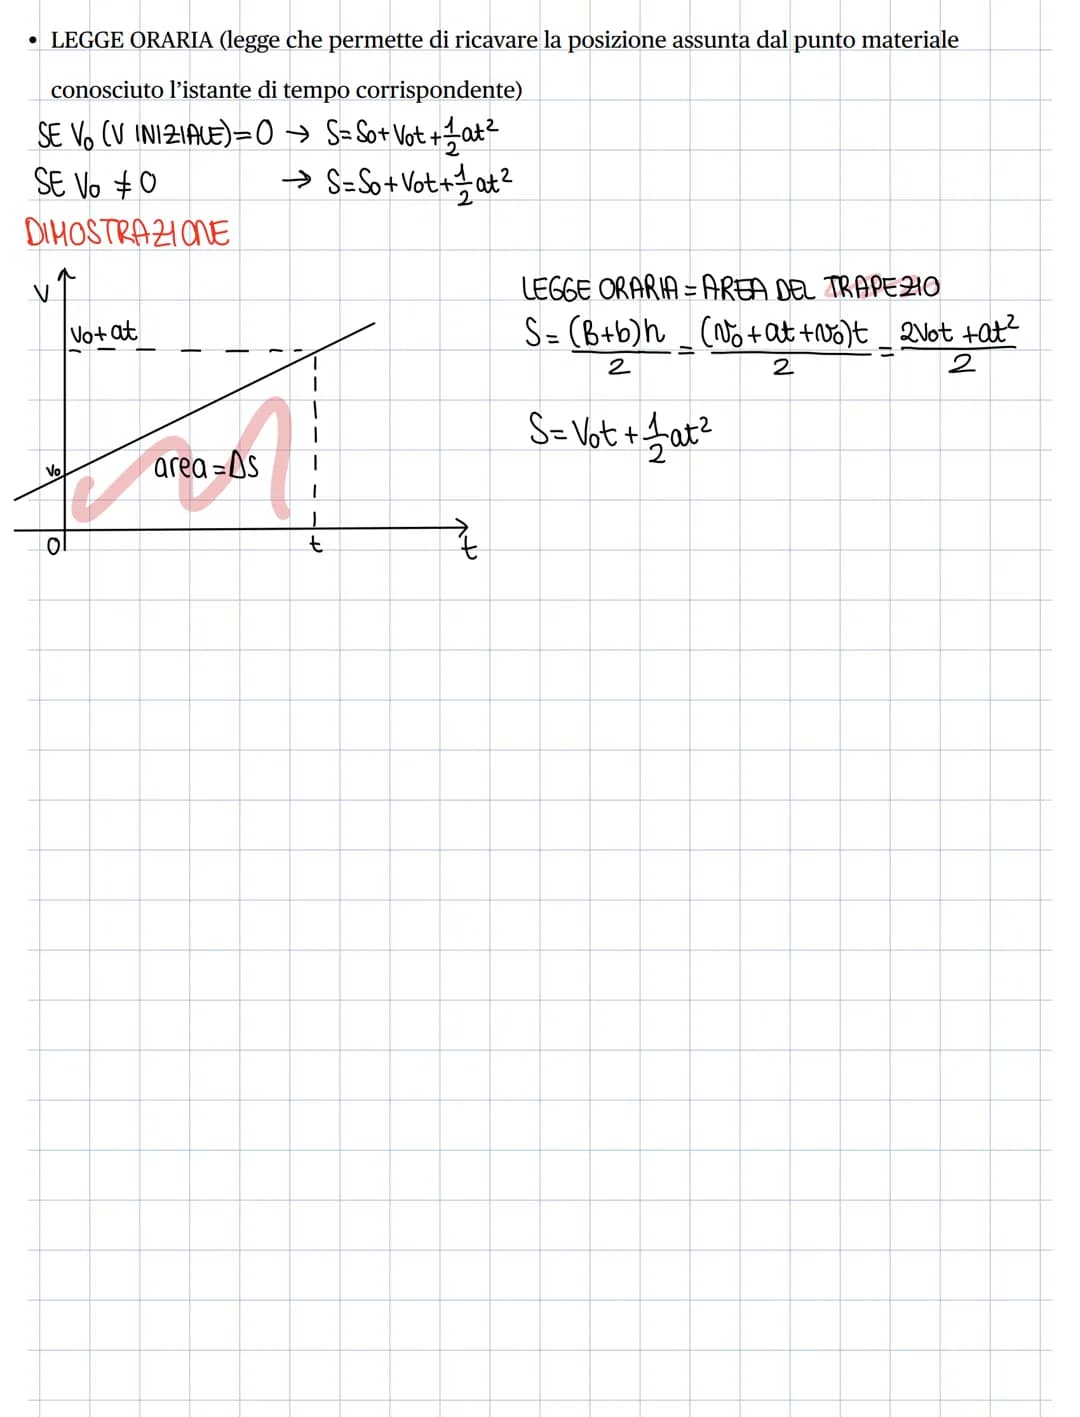 • LEGGE ORARIA (legge che permette di ricavare la posizione assunta dal punto materiale
conosciuto l'istante di tempo corrispondente)
SE V₀ (V INIZIALE)=0 → S=S₀+V₀t+½at²
SE V₀ ≠ 0 → S=S₀+V₀t+½at²
DIMOSTRAZIONE
V
V₀+at
V₀
area=ΔS
0
t
t
LEGGE ORARIA = AREA DEL TRAPEZIO
S= (B+b)h/2 = (V₀+at+V₀)t/2 = 2V₀t+at²/2
S=V₀t+½at²